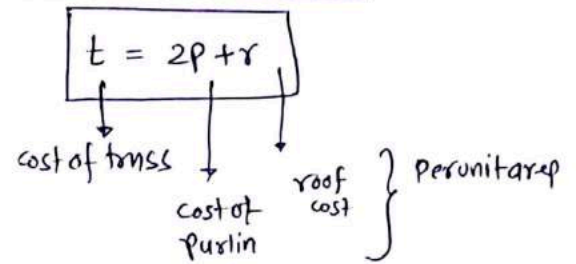 t = 2p + r
cost of truss
cost of
purlin
roof
cost
} per unit area